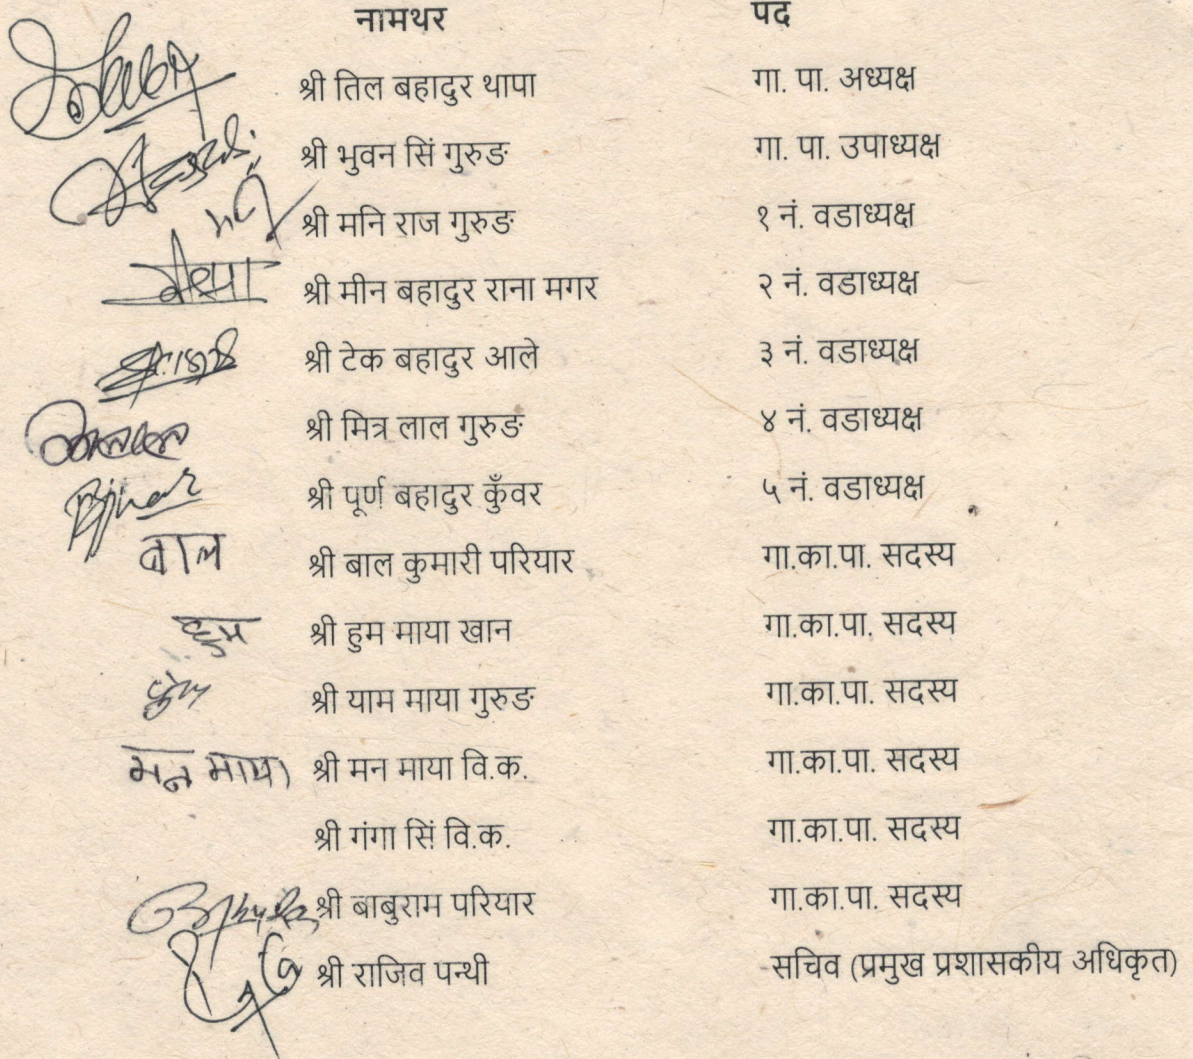 नामथर पद
श्री तिल बहादुर थापा गा. पा. अध्यक्ष
श्री भुवन सिं गुरुङ गा. पा. उपाध्यक्ष
श्री मनि राज गुरुङ १ नं. वडाध्यक्ष
श्री मीन बहादुर राना मगर २ नं. वडाध्यक्ष
श्री टेक बहादुर आले ३ नं. वडाध्यक्ष
श्री मित्र लाल गुरुङ ४ नं. वडाध्यक्ष
श्री पूर्ण बहादुर कुँवर ५ नं. वडाध्यक्ष
बाल श्री बाल कुमारी परियार गा.का.पा. सदस्य
हुम श्री हुम माया खान गा.का.पा. सदस्य
श्री याम माया गुरुङ गा.का.पा. सदस्य
मन माया श्री मन माया वि.क. गा.का.पा. सदस्य
श्री गंगा सिं वि.क. गा.का.पा. सदस्य
श्री बाबुराम परियार गा.का.पा. सदस्य
श्री राजिव पन्थी सचिव (प्रमुख प्रशासकीय अधिकृत)